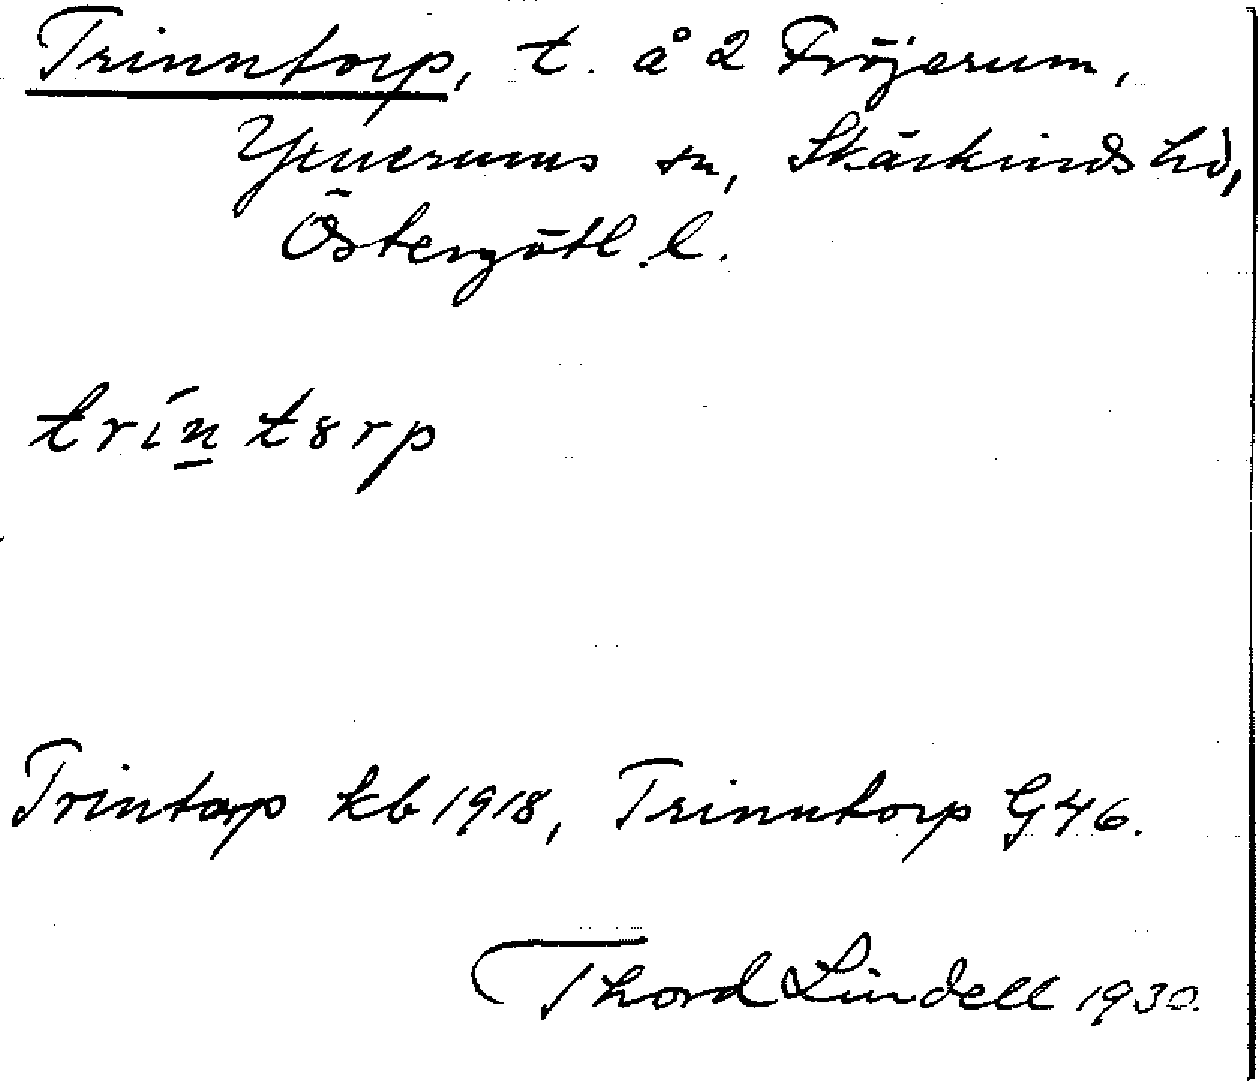 Trinntorp, t. å 2 Fröjerum,
Yxnerums sn, Skärkinds hd,
Östergötl. l.
trín̲ t8rp
Trintorp kb 1918, Trinntorp G 46.
Thord Lindell 1930.